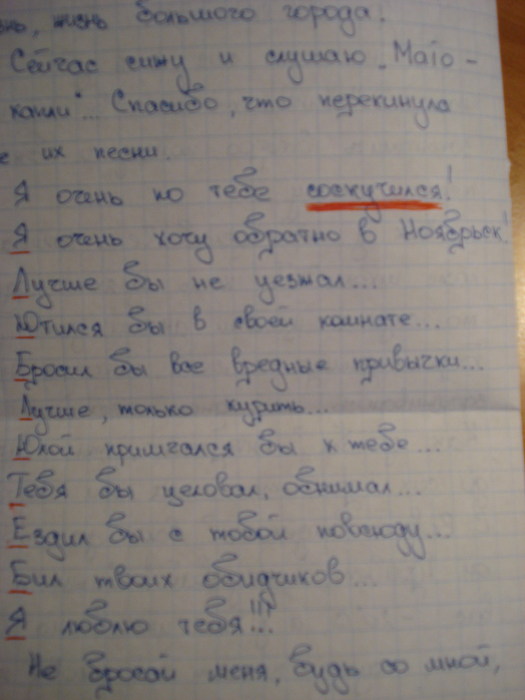 жизнь большого города!
Сейчас сижу и слушаю „Maio-
капли"... Спасибо, что перекинула
их песни.
Я очень по тебе соскучился!
Я очень хочу обратно в Ноябрьск!
Лучше бы не уезжал...
Ютился бы в своей комнате...
Бросил бы все вредные привычки...
Лучше, только курить...
Юлой примчался бы к тебе...
Тебя бы целовал, обнимал...
Ездил бы с тобой повсюду...
Бил твоих обидчиков...
Я люблю тебя!!!...
Не бросай меня, будь со мной,